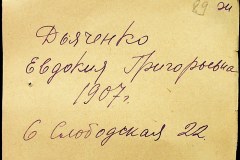 29 ж
Дьяченко
Евдокия Григорьевна
1907 г.
6 Слободская 22